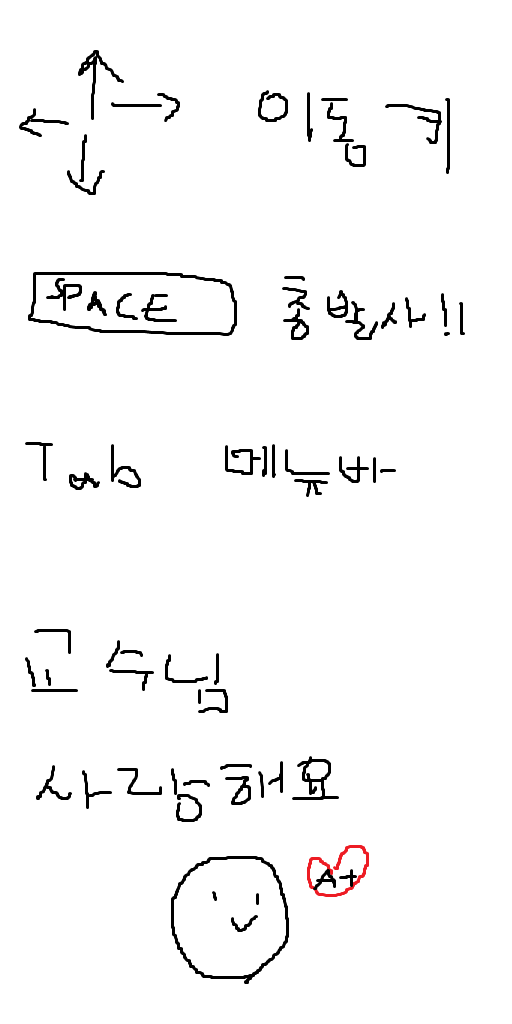 이동키
SPACE 총발사!!
Tab 메뉴바
교수님
사랑해요
A+